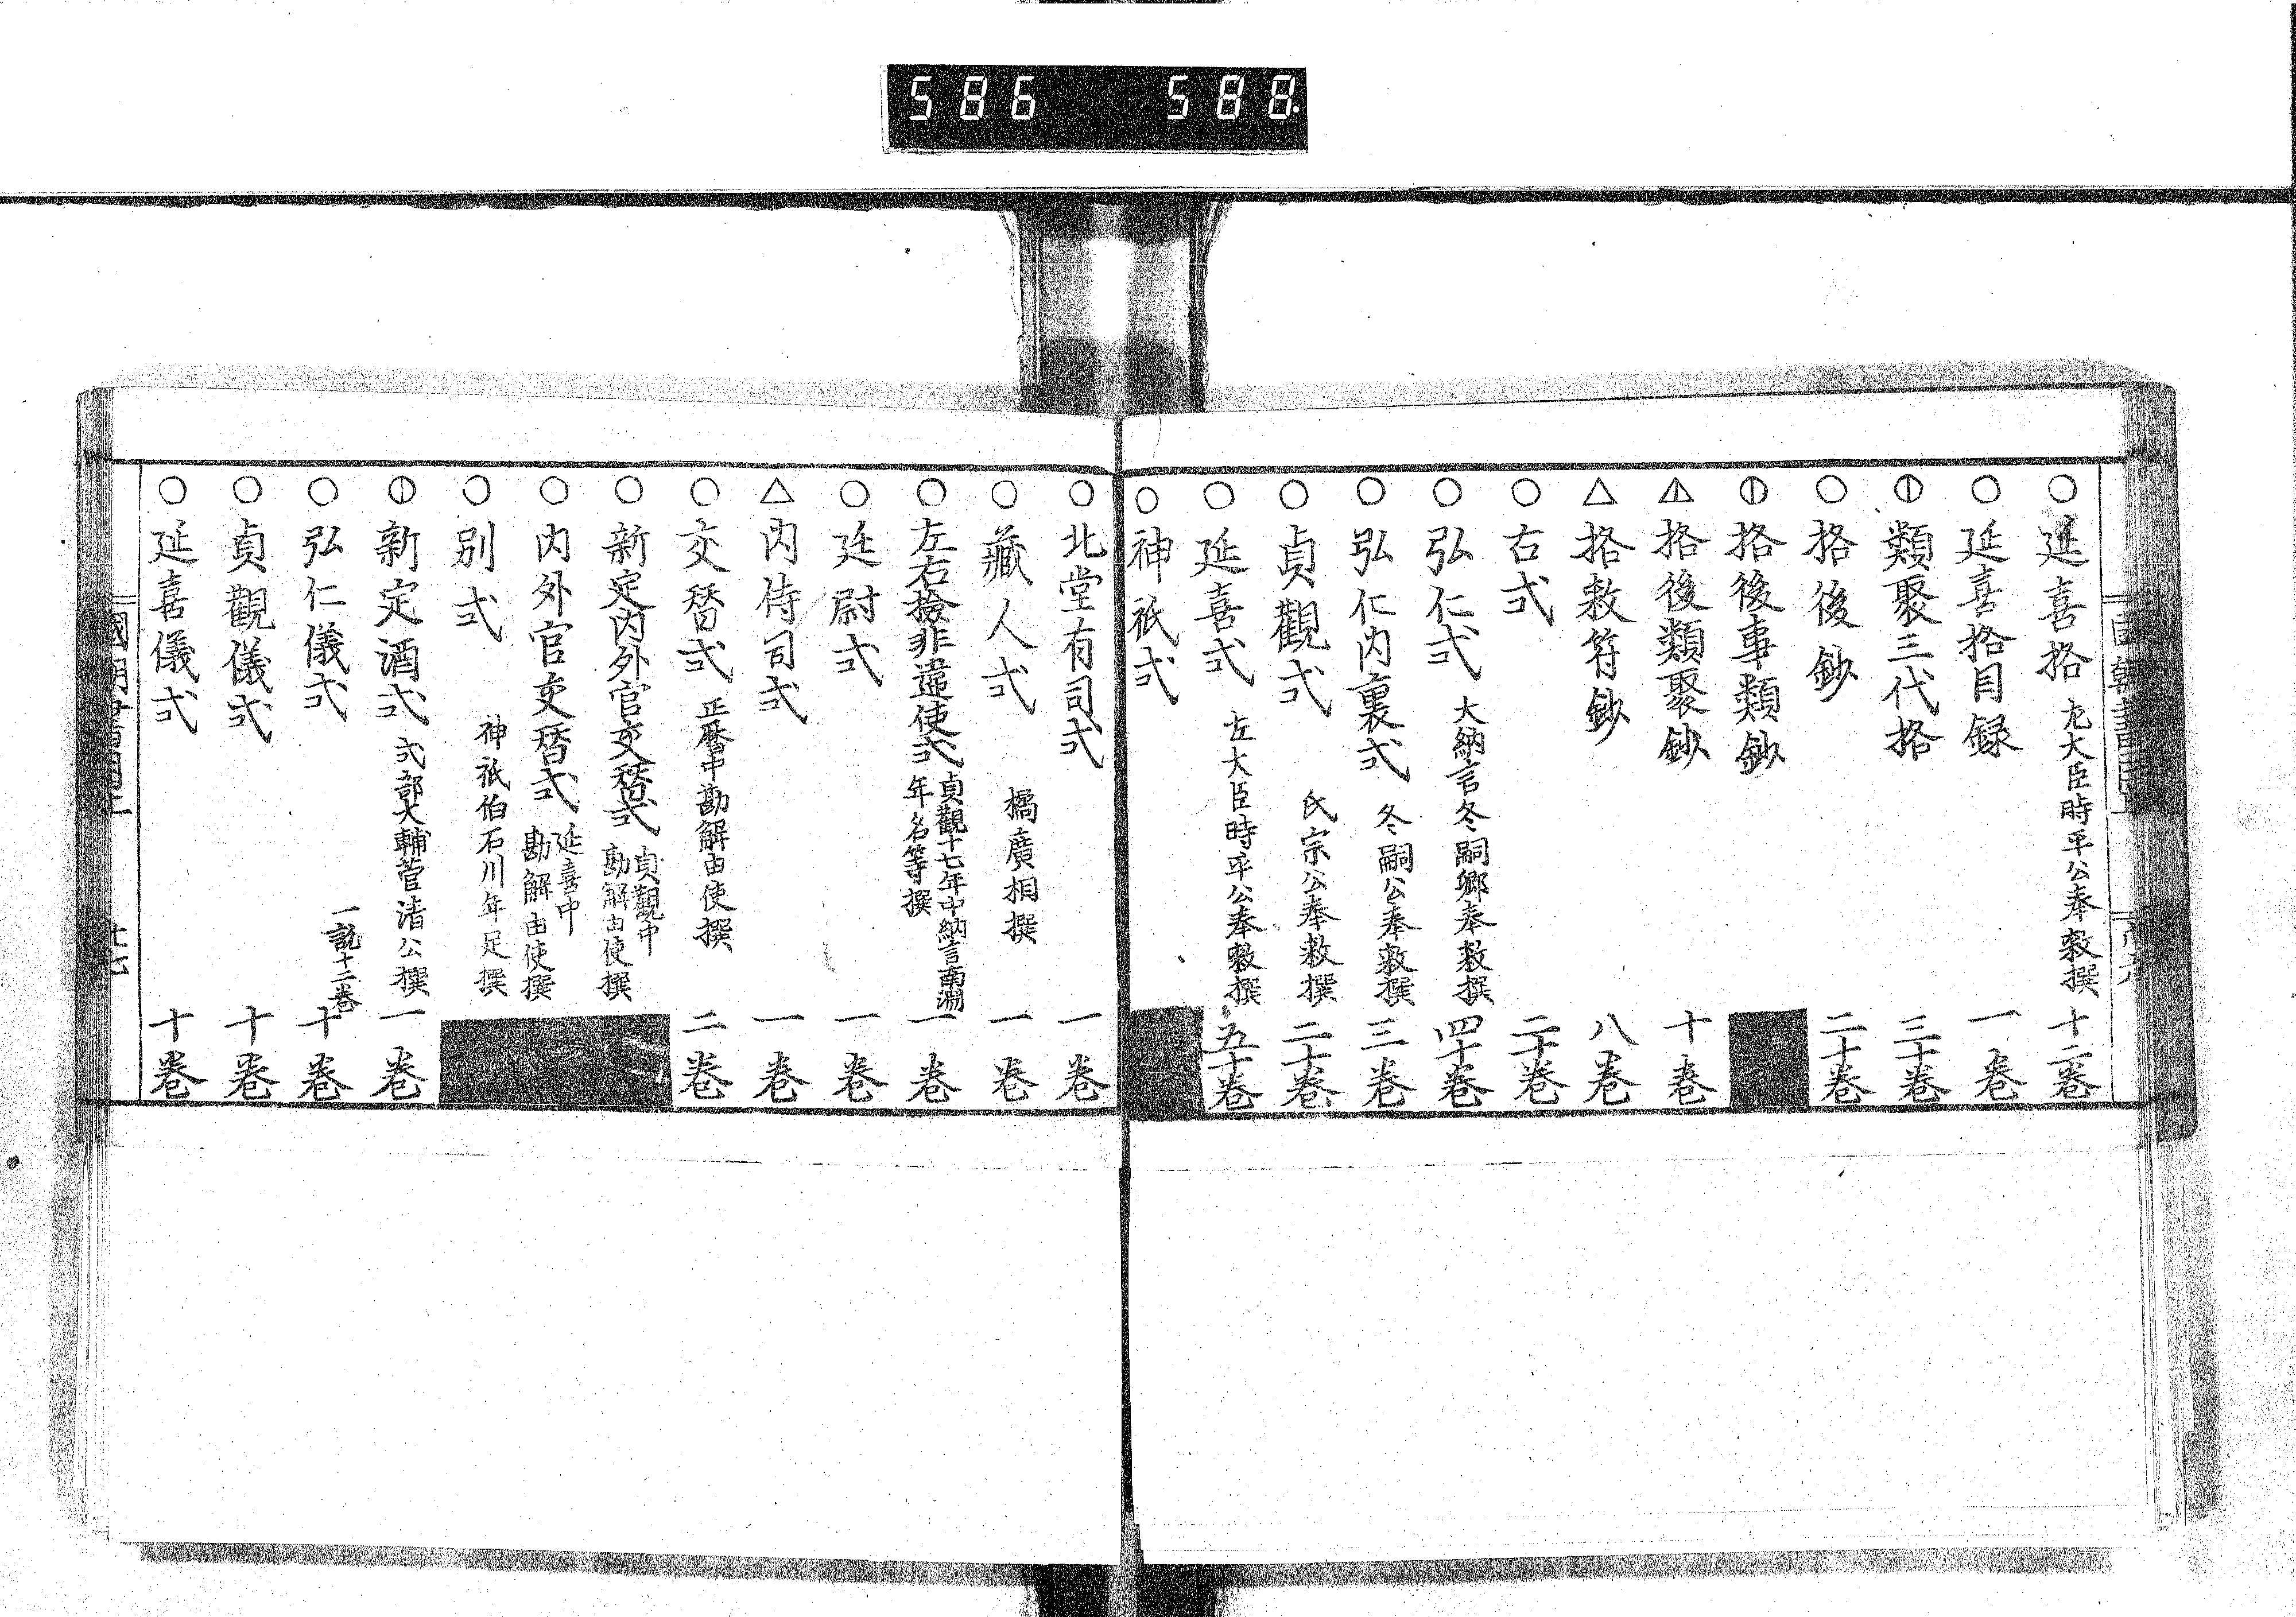 586 588.
○延喜格 左大臣時平公奉敕撰 十二卷
○延喜格目録 一卷
⦶類聚三代格 三十卷
○格後鈔 二十卷
⦶格後事類鈔
△格後類聚鈔 十卷
△格敕符鈔 八卷
○右式 二十卷
○弘仁式 大納言冬嗣卿奉敕撰 四十卷
○弘仁内裏式 冬嗣公奉敕撰 三卷
○貞觀式 氏宗公奉敕撰 二十卷
○延喜式 左大臣時平公奉敕撰 五十卷
○神祇式
○北堂有司式 一卷
○藏人式 橘廣相撰 一卷
○左右檢非違使式 貞觀十七年中納言南淵年名等撰 一卷
○廷尉式 一卷
△内侍司式 一卷
○交替式 正曆中勘解由使撰 二卷
○新定内外官交替式 貞觀中勘解由使撰
○内外官交替式 延喜中勘解由使撰
○別式 神祇伯石川年足撰
⦶新定酒式 式部大輔菅清公撰 一卷
○弘仁儀式 一説十二卷 十卷
○貞觀儀式 十卷
○延喜儀式 十卷